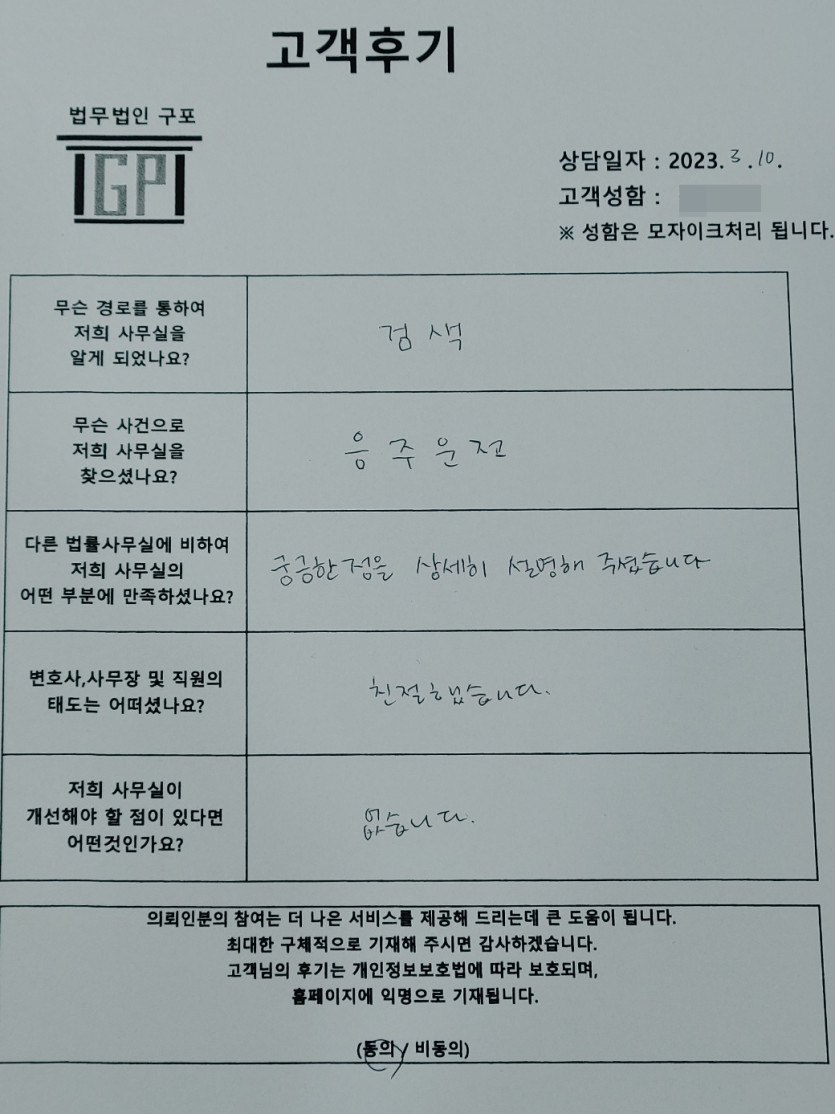 고객후기
법무법인 구포
IGPI
상담일자 : 2023. 3 . 10.
고객성함 :
※ 성함은 모자이크처리 됩니다.
무슨 경로를 통하여
저희 사무실을
알게 되었나요?
검색
무슨 사건으로
저희 사무실을
찾으셨나요?
음주운전
다른 법률사무실에 비하여
저희 사무실의
어떤 부분에 만족하셨나요?
궁금한점을 상세히 설명해 주셨습니다
변호사,사무장 및 직원의
태도는 어떠셨나요?
친절했습니다.
저희 사무실이
개선해야 할 점이 있다면
어떤것인가요?
없습니다.
의뢰인분의 참여는 더 나은 서비스를 제공해 드리는데 큰 도움이 됩니다.
최대한 구체적으로 기재해 주시면 감사하겠습니다.
고객님의 후기는 개인정보보호법에 따라 보호되며,
홈페이지에 익명으로 기재됩니다.
(동의 / 비동의)